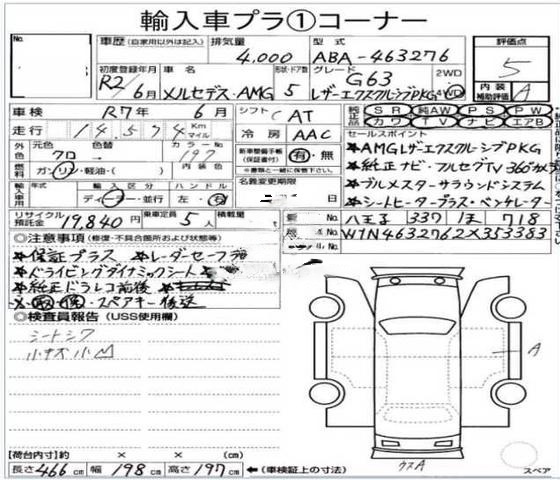 輸入車プラ①コーナー
No.
車歴 (自家用以外は記入)
排気量 4,000
型式 ABA-463276
評価点 5
初度登録年月 R2/6月
車名 メルセデス・AMG
形状・ドア数 5
グレード G63 レザーエクスクルーシブPKG
2WD 4WD
内装補助評価 A
車検 R7年 6月
シフト CAT
純正品 SR 純AW PS PW
カワ TV ナビ エアB
走行 14,574 Km マイル
冷房 AAC
セールスポイント
元色 クロ 色替 カラーNo 197
新車整備手帳(保証書付) 有・無
※書類と一緒に保管下さい。
★AMGレザエクスクルーシブPKG
燃料 ガソリン・軽油・( )
名義変更期限
★純正ナビ・フルセグTV 360°カメラ
輸入車用 年式 輸入区分 ディーラー・並行 ハンドル 左・右
★ブルメスターサラウンドシステム
月 日
★シートヒータープラス・ベンチレーター
リサイクル預託金 19,840円
乗定員 5人
積載量
八王子 339 ほ 718
W1N4632762X353383
◎注意事項 (修復・不具合箇所および状態等)
★保証プラス ★レーダーセーフティ
★ドライビングダイナミックシート
★純正ドラレコ前後
★取・保・スペアキー後送
◎検査員報告 (USS使用欄)
シートシワ
小キズ 小凹
A
クスA
スペア
[荷台内寸]約 × × (cm)
長さ466cm 幅198cm 高さ197cm ←(車検証上の寸法)